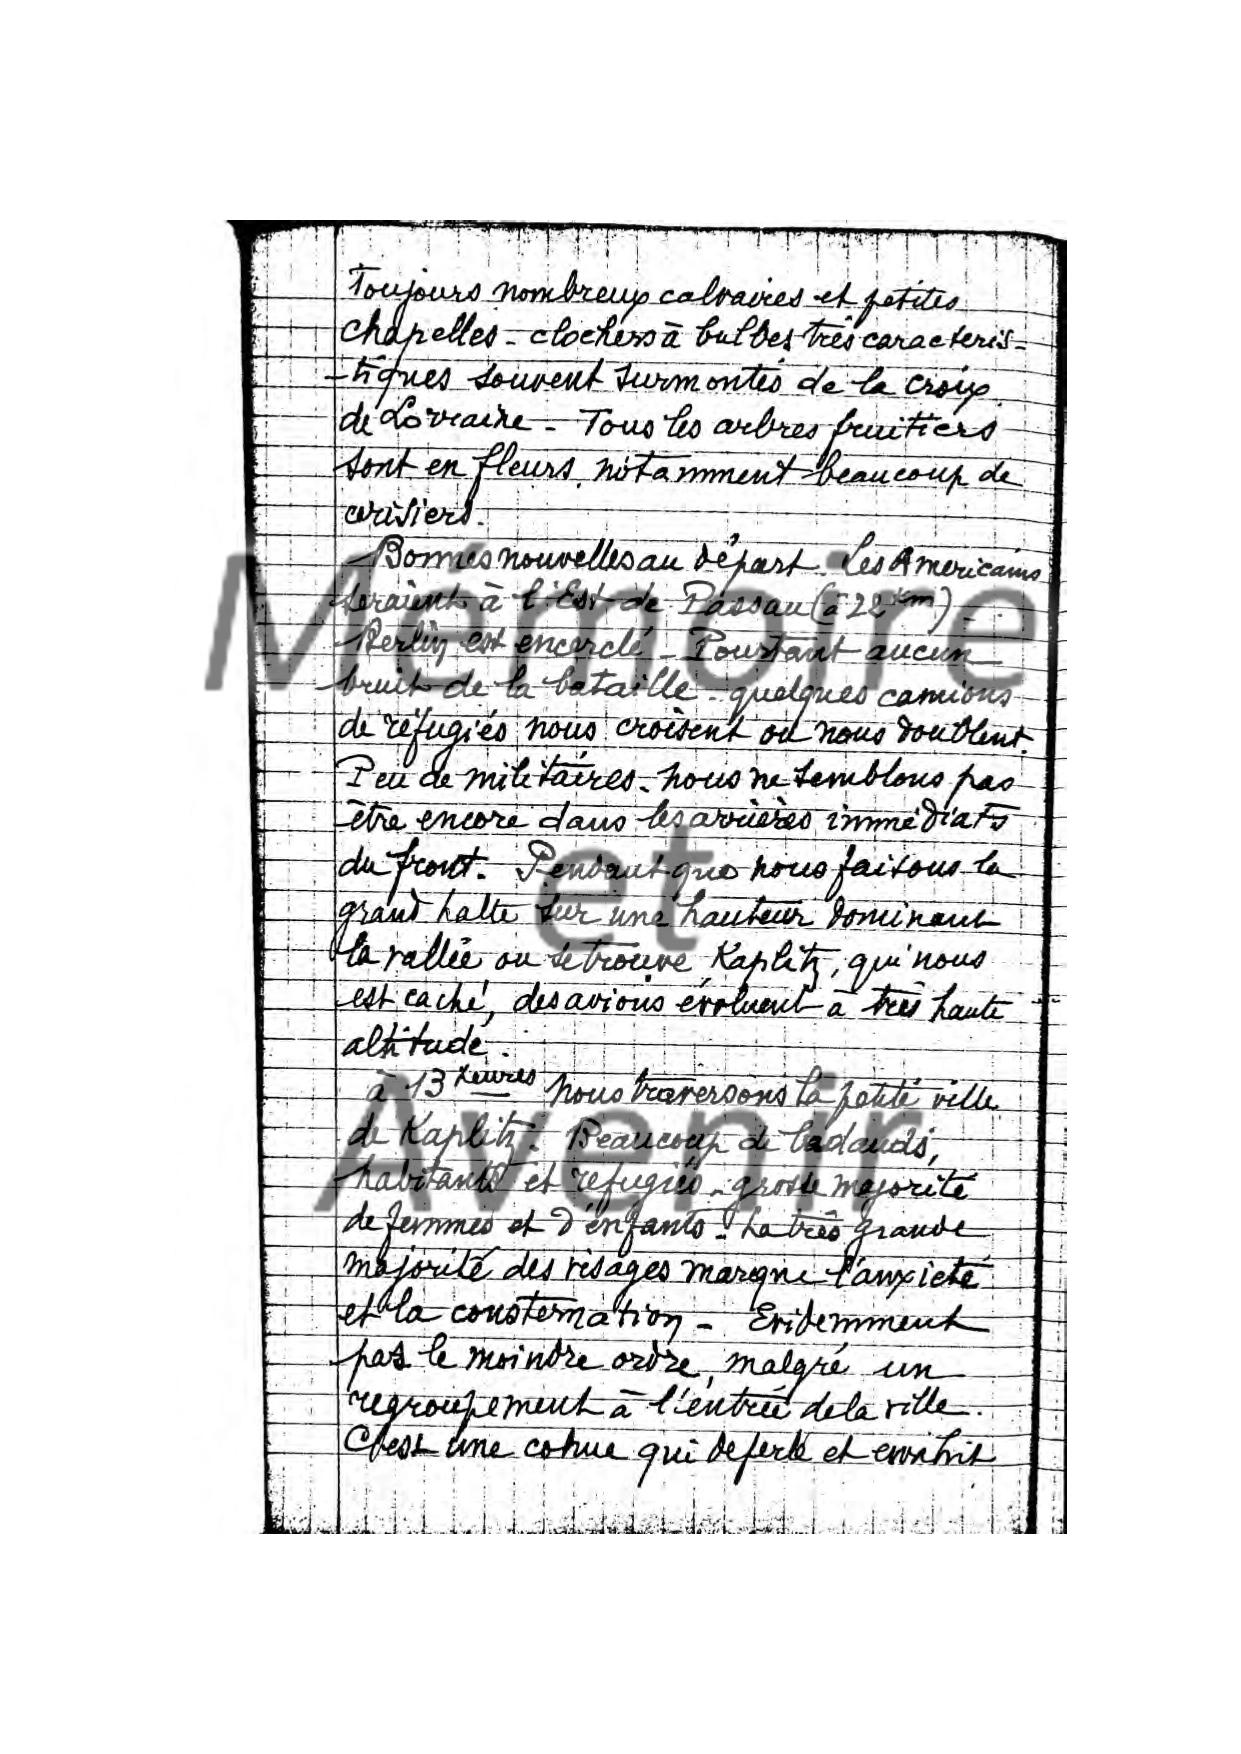 Toujours nombreux calvaires et petites
chapelles - clochers à bulbes très caracteris-
-tiques souvent surmontés de la croix
de Lorraine - Tous les arbres fruitiers
sont en fleurs, notamment beaucoup de
cerisiers.
Bonnes nouvelles au départ. Les Americains
seraient à l'Est de Passau (à 22 km) -
Berlin est encerclé - Pourtant aucun
bruit de la bataille - quelques camions
de réfugiés nous croisent ou nous doublent.
Peu de militaires - nous ne semblons pas
être encore dans les arrières immédiats
du front. Pendant que nous faisons la
grand halte sur une hauteur dominant
la vallée ou se trouve Kaplitz, qui nous
est caché, des avions évoluent à très haute
altitude.
à 13 heures nous traversons la petite ville
de Kaplitz. Beaucoup de badauds,
habitants et réfugiés - grosse majorité
de femmes et d'enfants - La très grande
majorité des visages marque l'anxieté
et la consternation - Evidemment
pas le moindre ordre, malgré un
regroupement à l'entrée de la ville.
C'est une cohue qui deferle et envahit
Mémoire
et
Avenir